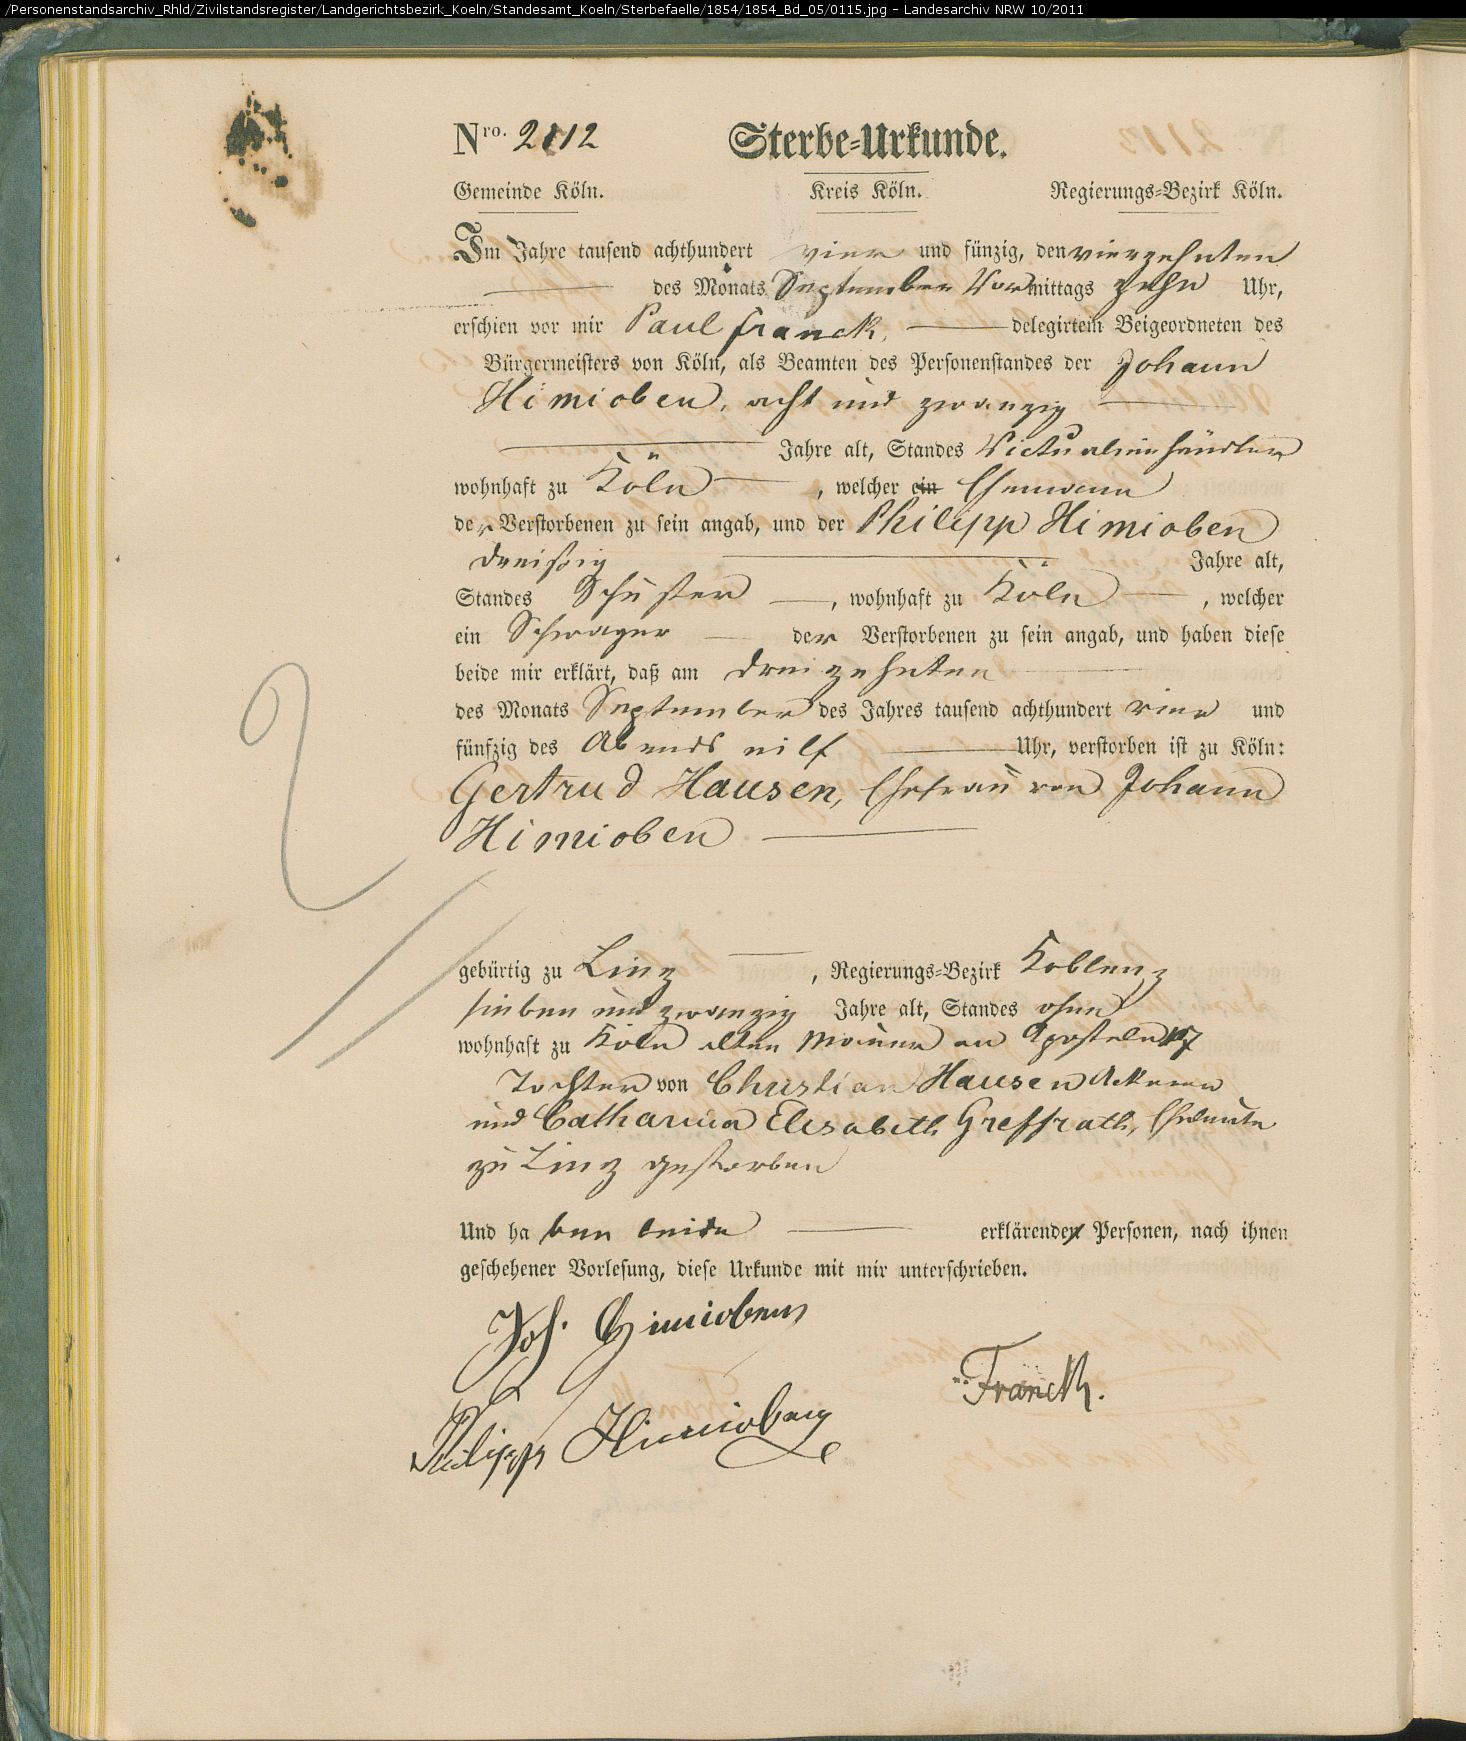 /Personenstandsarchiv_Rhld/Zivilstandsregister/Landgerichtsbezirk_Koeln/Standesamt_Koeln/Sterbefaelle/1854/1854_Bd_05/0115.jpg - Landesarchiv NRW 10/2011
Nro. 2112 Sterbe-Urkunde.
Gemeinde Köln. Kreis Köln. Regierungs-Bezirk Köln.
Im Jahre tausend achthundert vier und fünzig, den vierzehnten
des Monats September Vormittags zehn Uhr,
erschien vor mir Paul Franck, delegirtem Beigeordneten des
Bürgermeisters von Köln, als Beamten des Personenstandes der Johann
Himioben, acht und zwanzig
Jahre alt, Standes Victualienhändler
wohnhaft zu Köln, welcher ein Ehemann
der Verstorbenen zu sein angab, und der Philipp Himioben
dreißig Jahre alt,
Standes Schuster, wohnhaft zu Köln, welcher
ein Schwager der Verstorbenen zu sein angab, und haben diese
beide mir erklärt, daß am dreizehnten
des Monats September des Jahres tausend achthundert vier und
fünfzig des Abends eilf Uhr, verstorben ist zu Köln:
Gertrud Hausen, Ehefrau von Johann
Himioben
gebürtig zu Linz, Regierungs-Bezirk Koblenz
sieben und zwanzig Jahre alt, Standes ohne
wohnhaft zu Köln alten Mauer an Aposteln 17
Tochter von Christian Hausen Ackerer
und Catharina Elisabeth Greffrath, Eheleute
zu Linz gestorben
Und haben beide erklärenden Personen, nach ihnen
geschehener Vorlesung, diese Urkunde mit mir unterschrieben.
Joh. Himioben
Franck.
Philipp Himioben